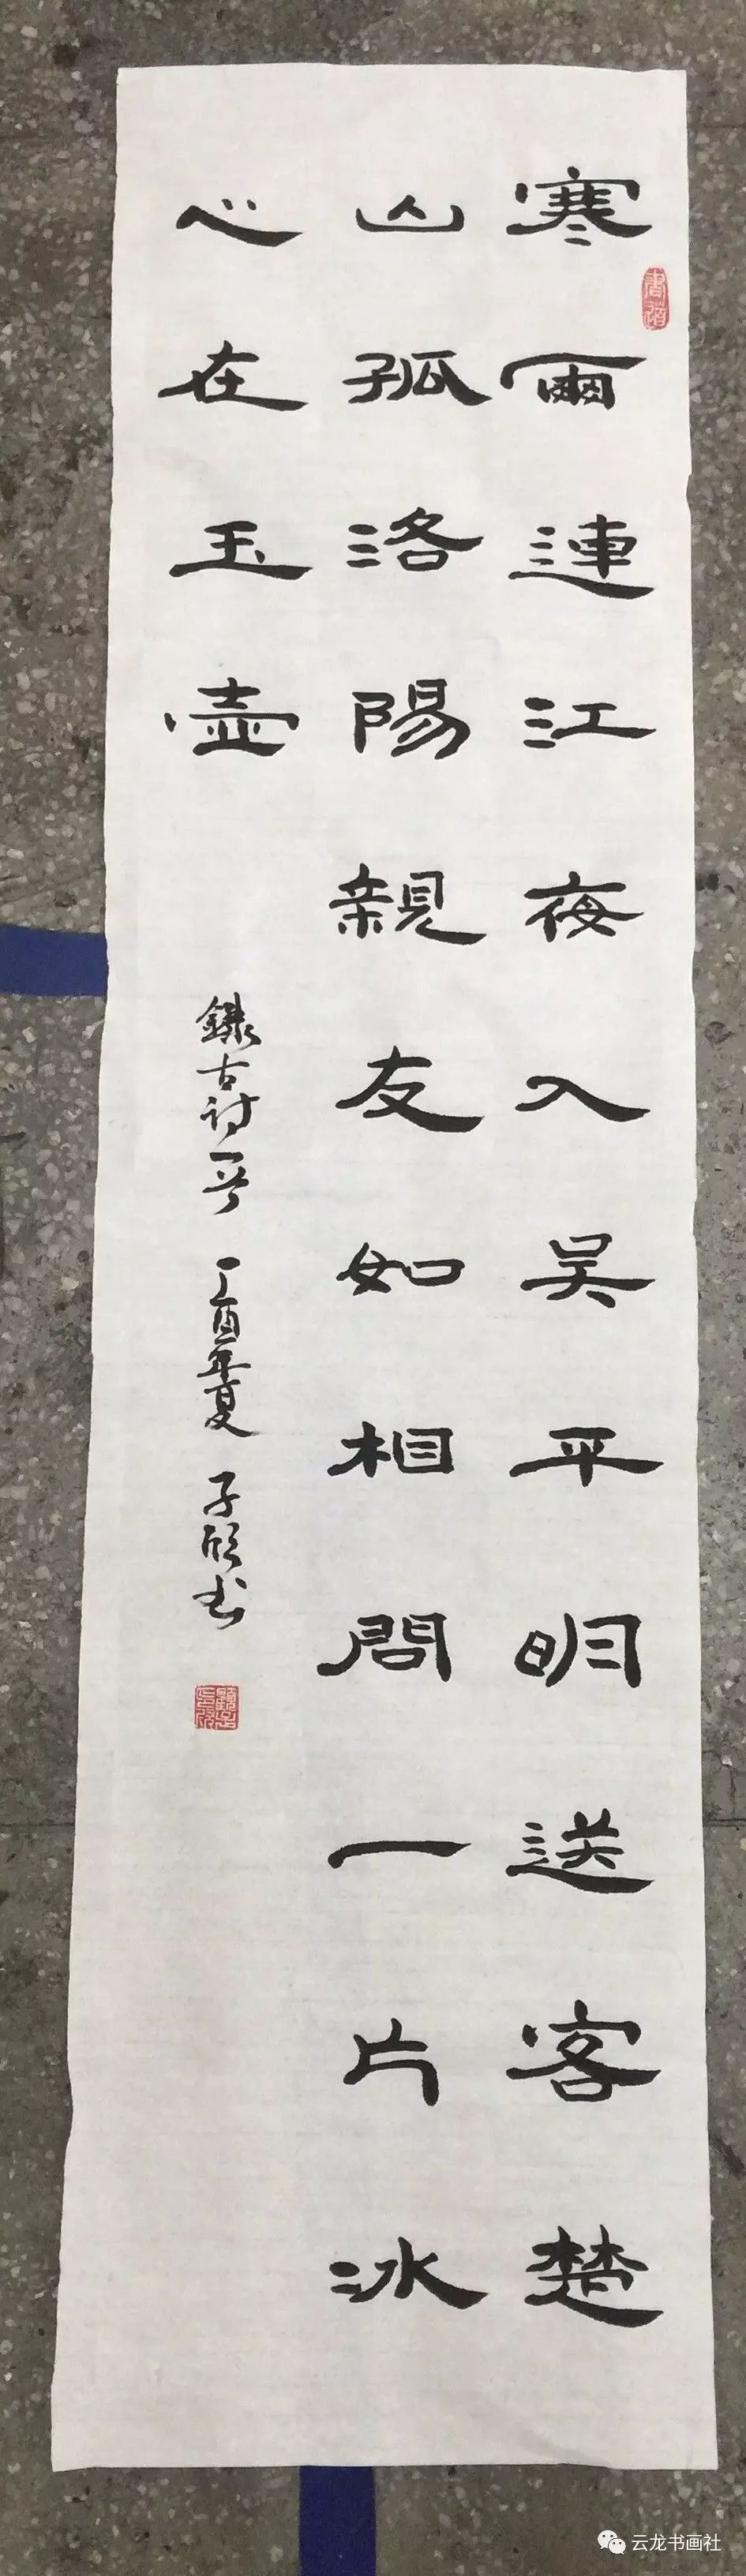 寒雨連江夜入吴平明送客楚
山孤洛陽親友如相問一片冰
心在玉壺
錄古詩一首 丁酉年夏 子欣书
云龙书画社